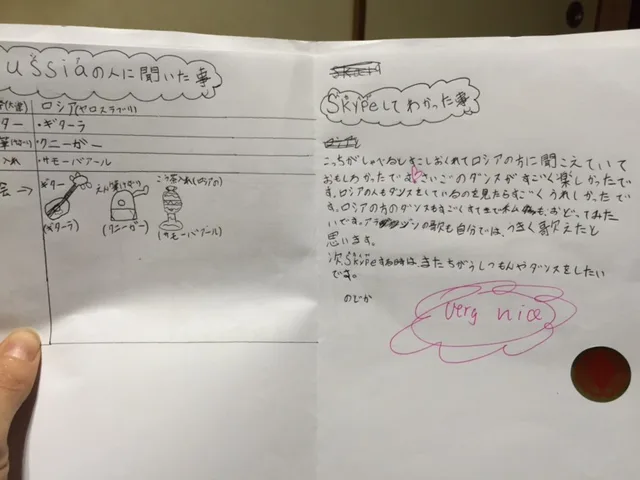 ussiaの人に聞いた事
ロシア(ヤロスラブリ)
ター ・ギターラ
・クニーガー
入れ ・サモーバアール
会→
ギター
(ギターラ)
えんぴつけずり
(クニーガー)
こう茶入れ(ロシアの)
(サモーバアール)
Skypeしてわかった事
こっちがしゃべるとすこしおくれてロシアの方に聞こえていて
おもしろかったです。さいごのダンスがすごく楽しかったで
す。ロシアの人もダンスをしているのを見たらすごくうれしかったで
す。ロシアの方のダンスもすごくすてきで
も、おどってみた
いです。
の歌も自分では、うまく歌えたと
思います。
次Skypeする時は、またちがうしつもんやダンスをしたい
です。
のどか
very nice